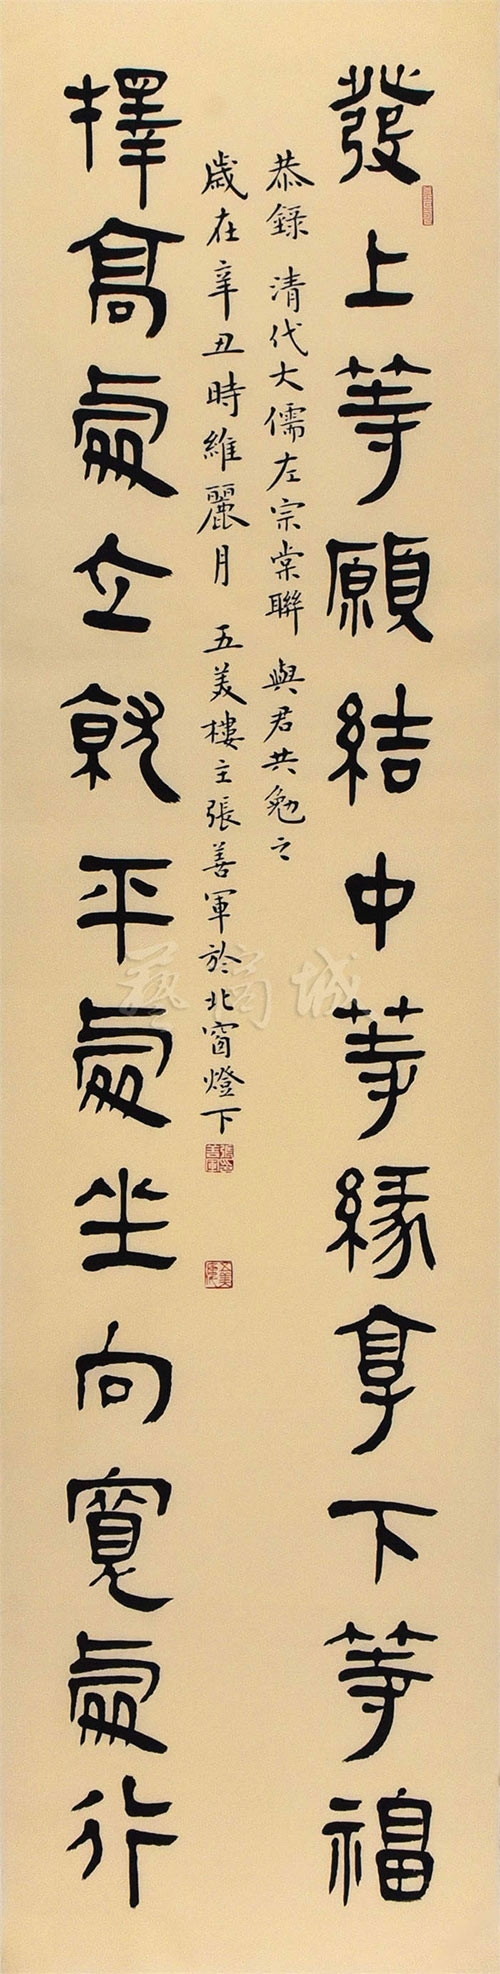 發上等願結中等緣享下等福
恭錄 清代大儒左宗棠聯 與君共勉之
歲在辛丑時維麗月 五美樓主張善軍於北窗燈下
擇高處立就平處坐向寬處行
藝商城